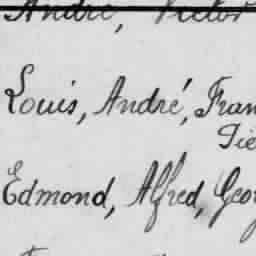 André, Victor
Louis, André, Fran
Pie
Edmond, Alfred, Geor